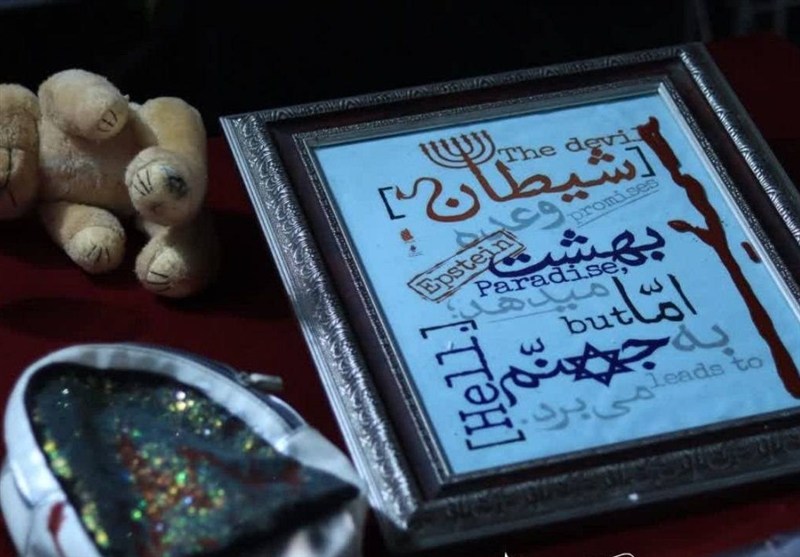 The devil
[شیطان]
وعده promises
Epstein بهشت
Paradise,
میدهد؛
but امّا
به
[Hell] جهنّم
leads to
می‌برد.